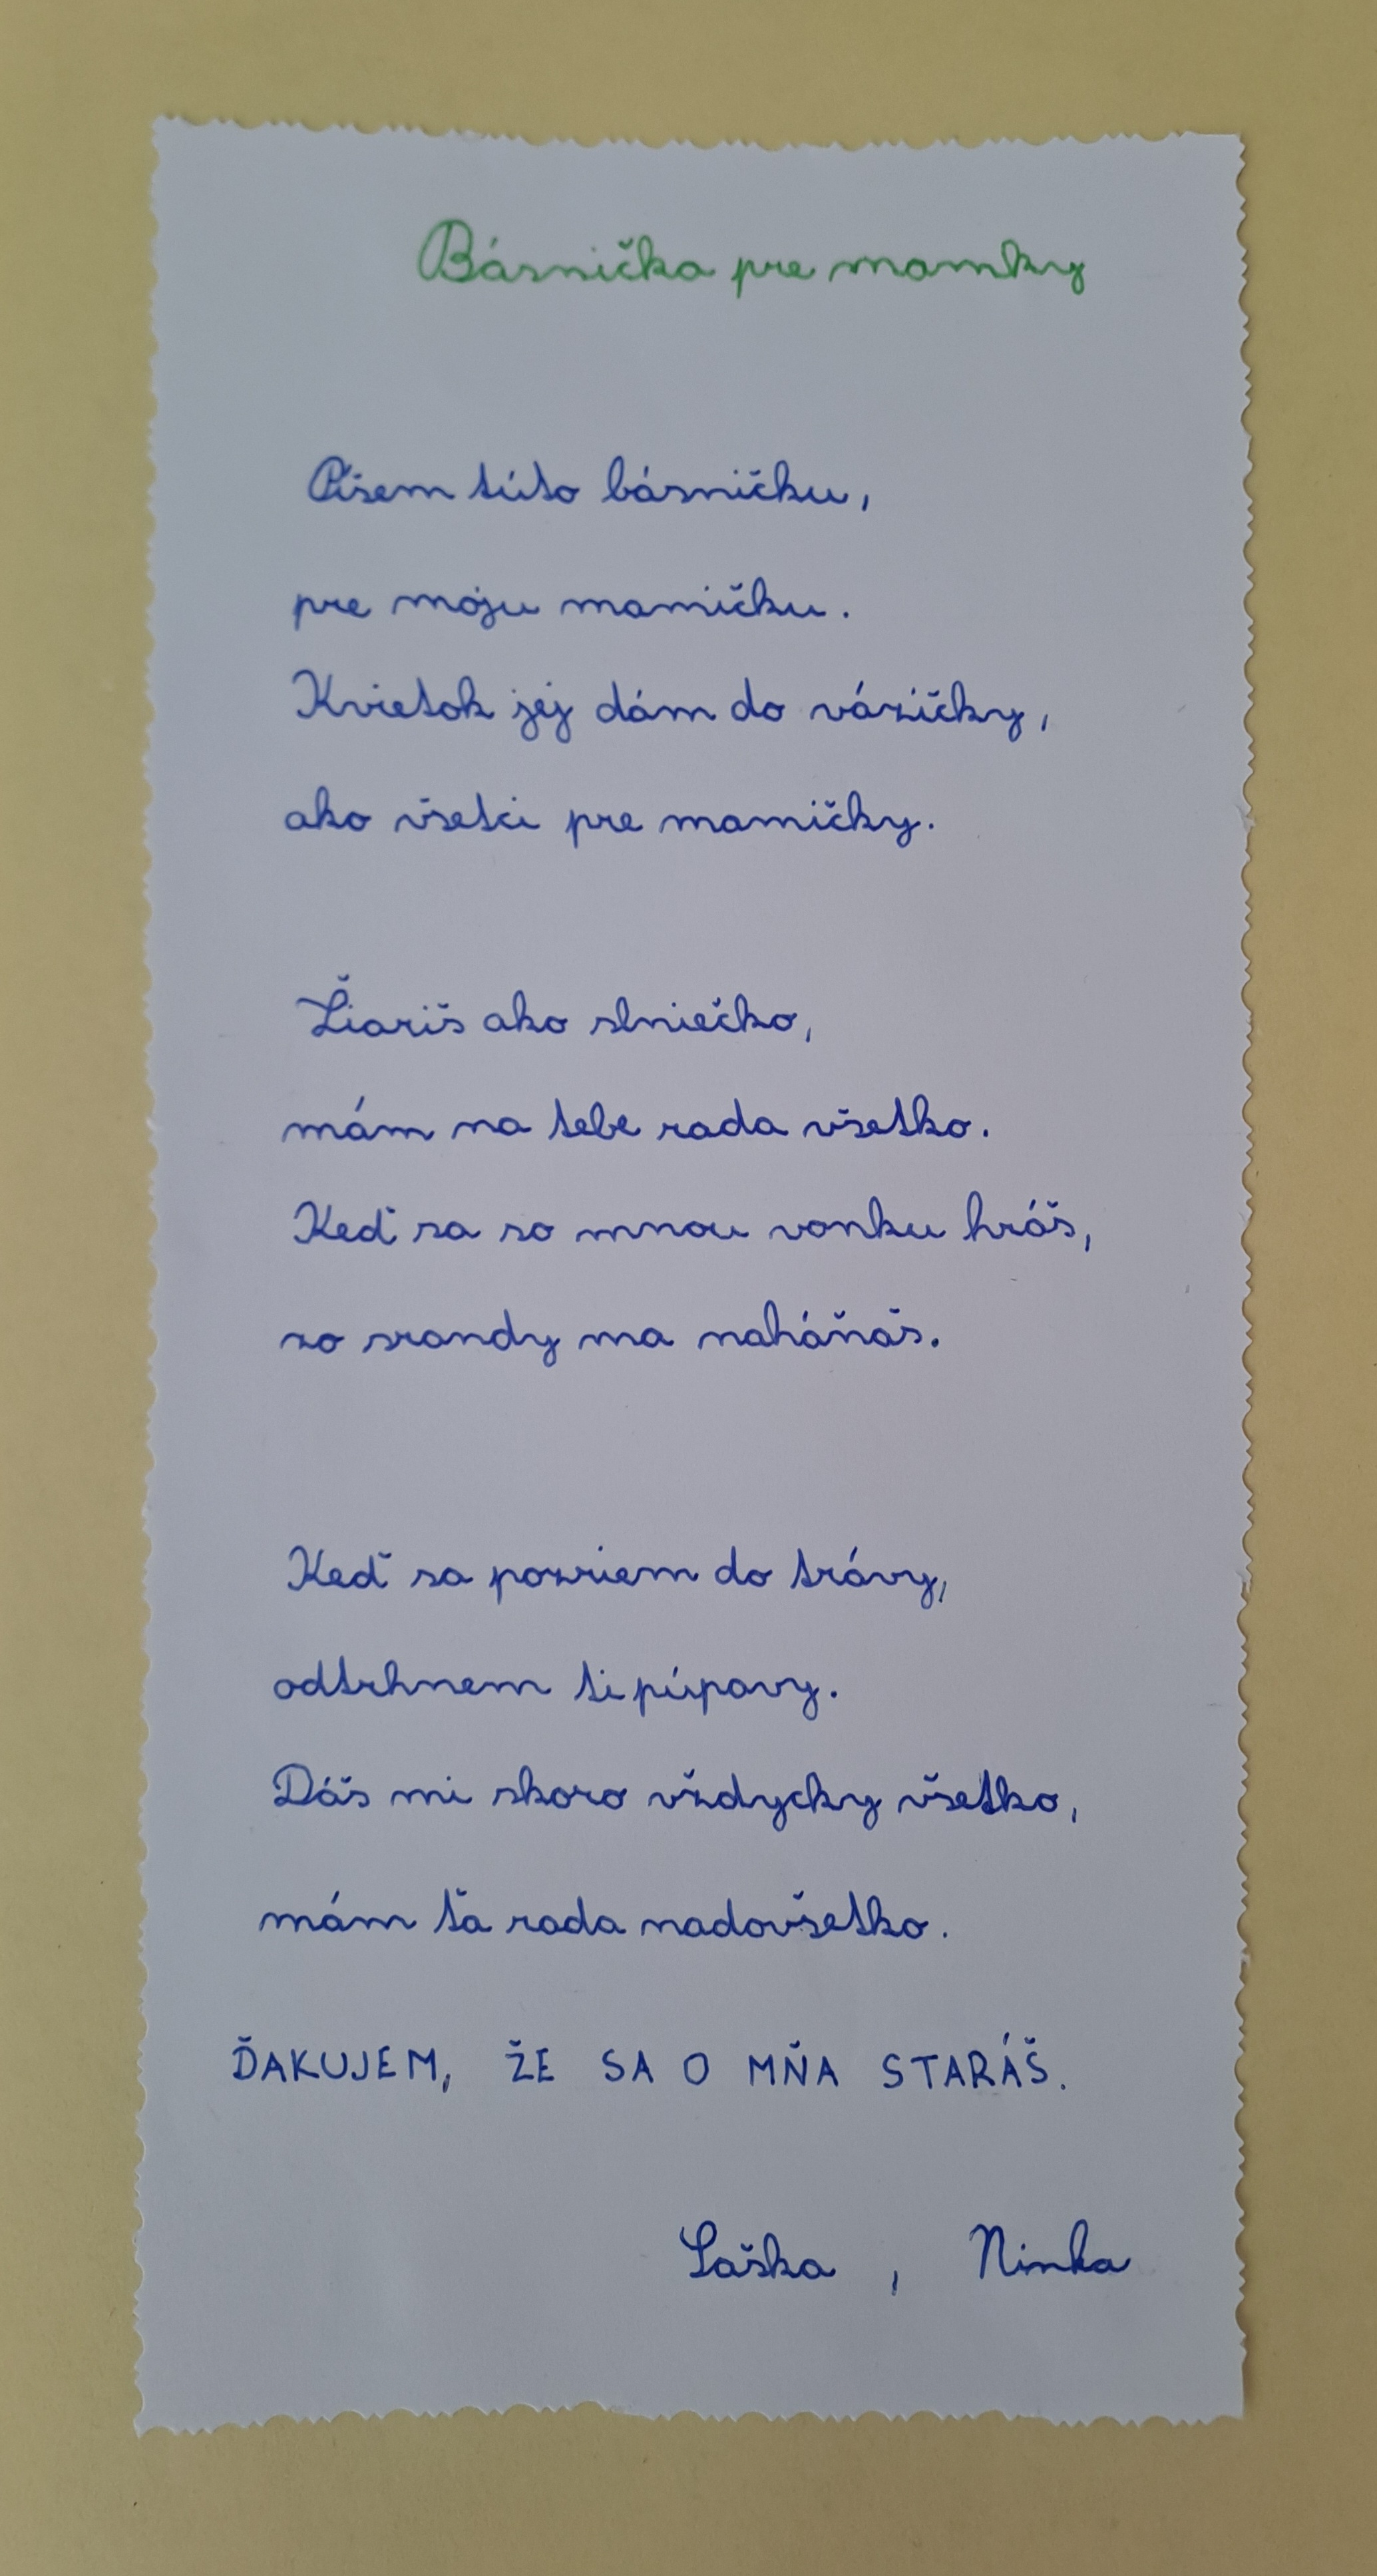 Básnička pre mamky
Píšem túto básničku,
pre moju mamičku.
Kvietok jej dám do vázičky,
ako všetci pre mamičky.
Žiariš ako slniečko,
mám na tebe rada všetko.
Keď sa so mnou vonku hráš,
zo srandy ma naháňaš.
Keď sa pozriem do trávy,
odtrhnem ti púpavy.
Dáš mi skoro vždycky všetko,
mám ťa rada nadovšetko.
ĎAKUJEM, ŽE SA O MŇA STARÁŠ.
Saška, Ninka